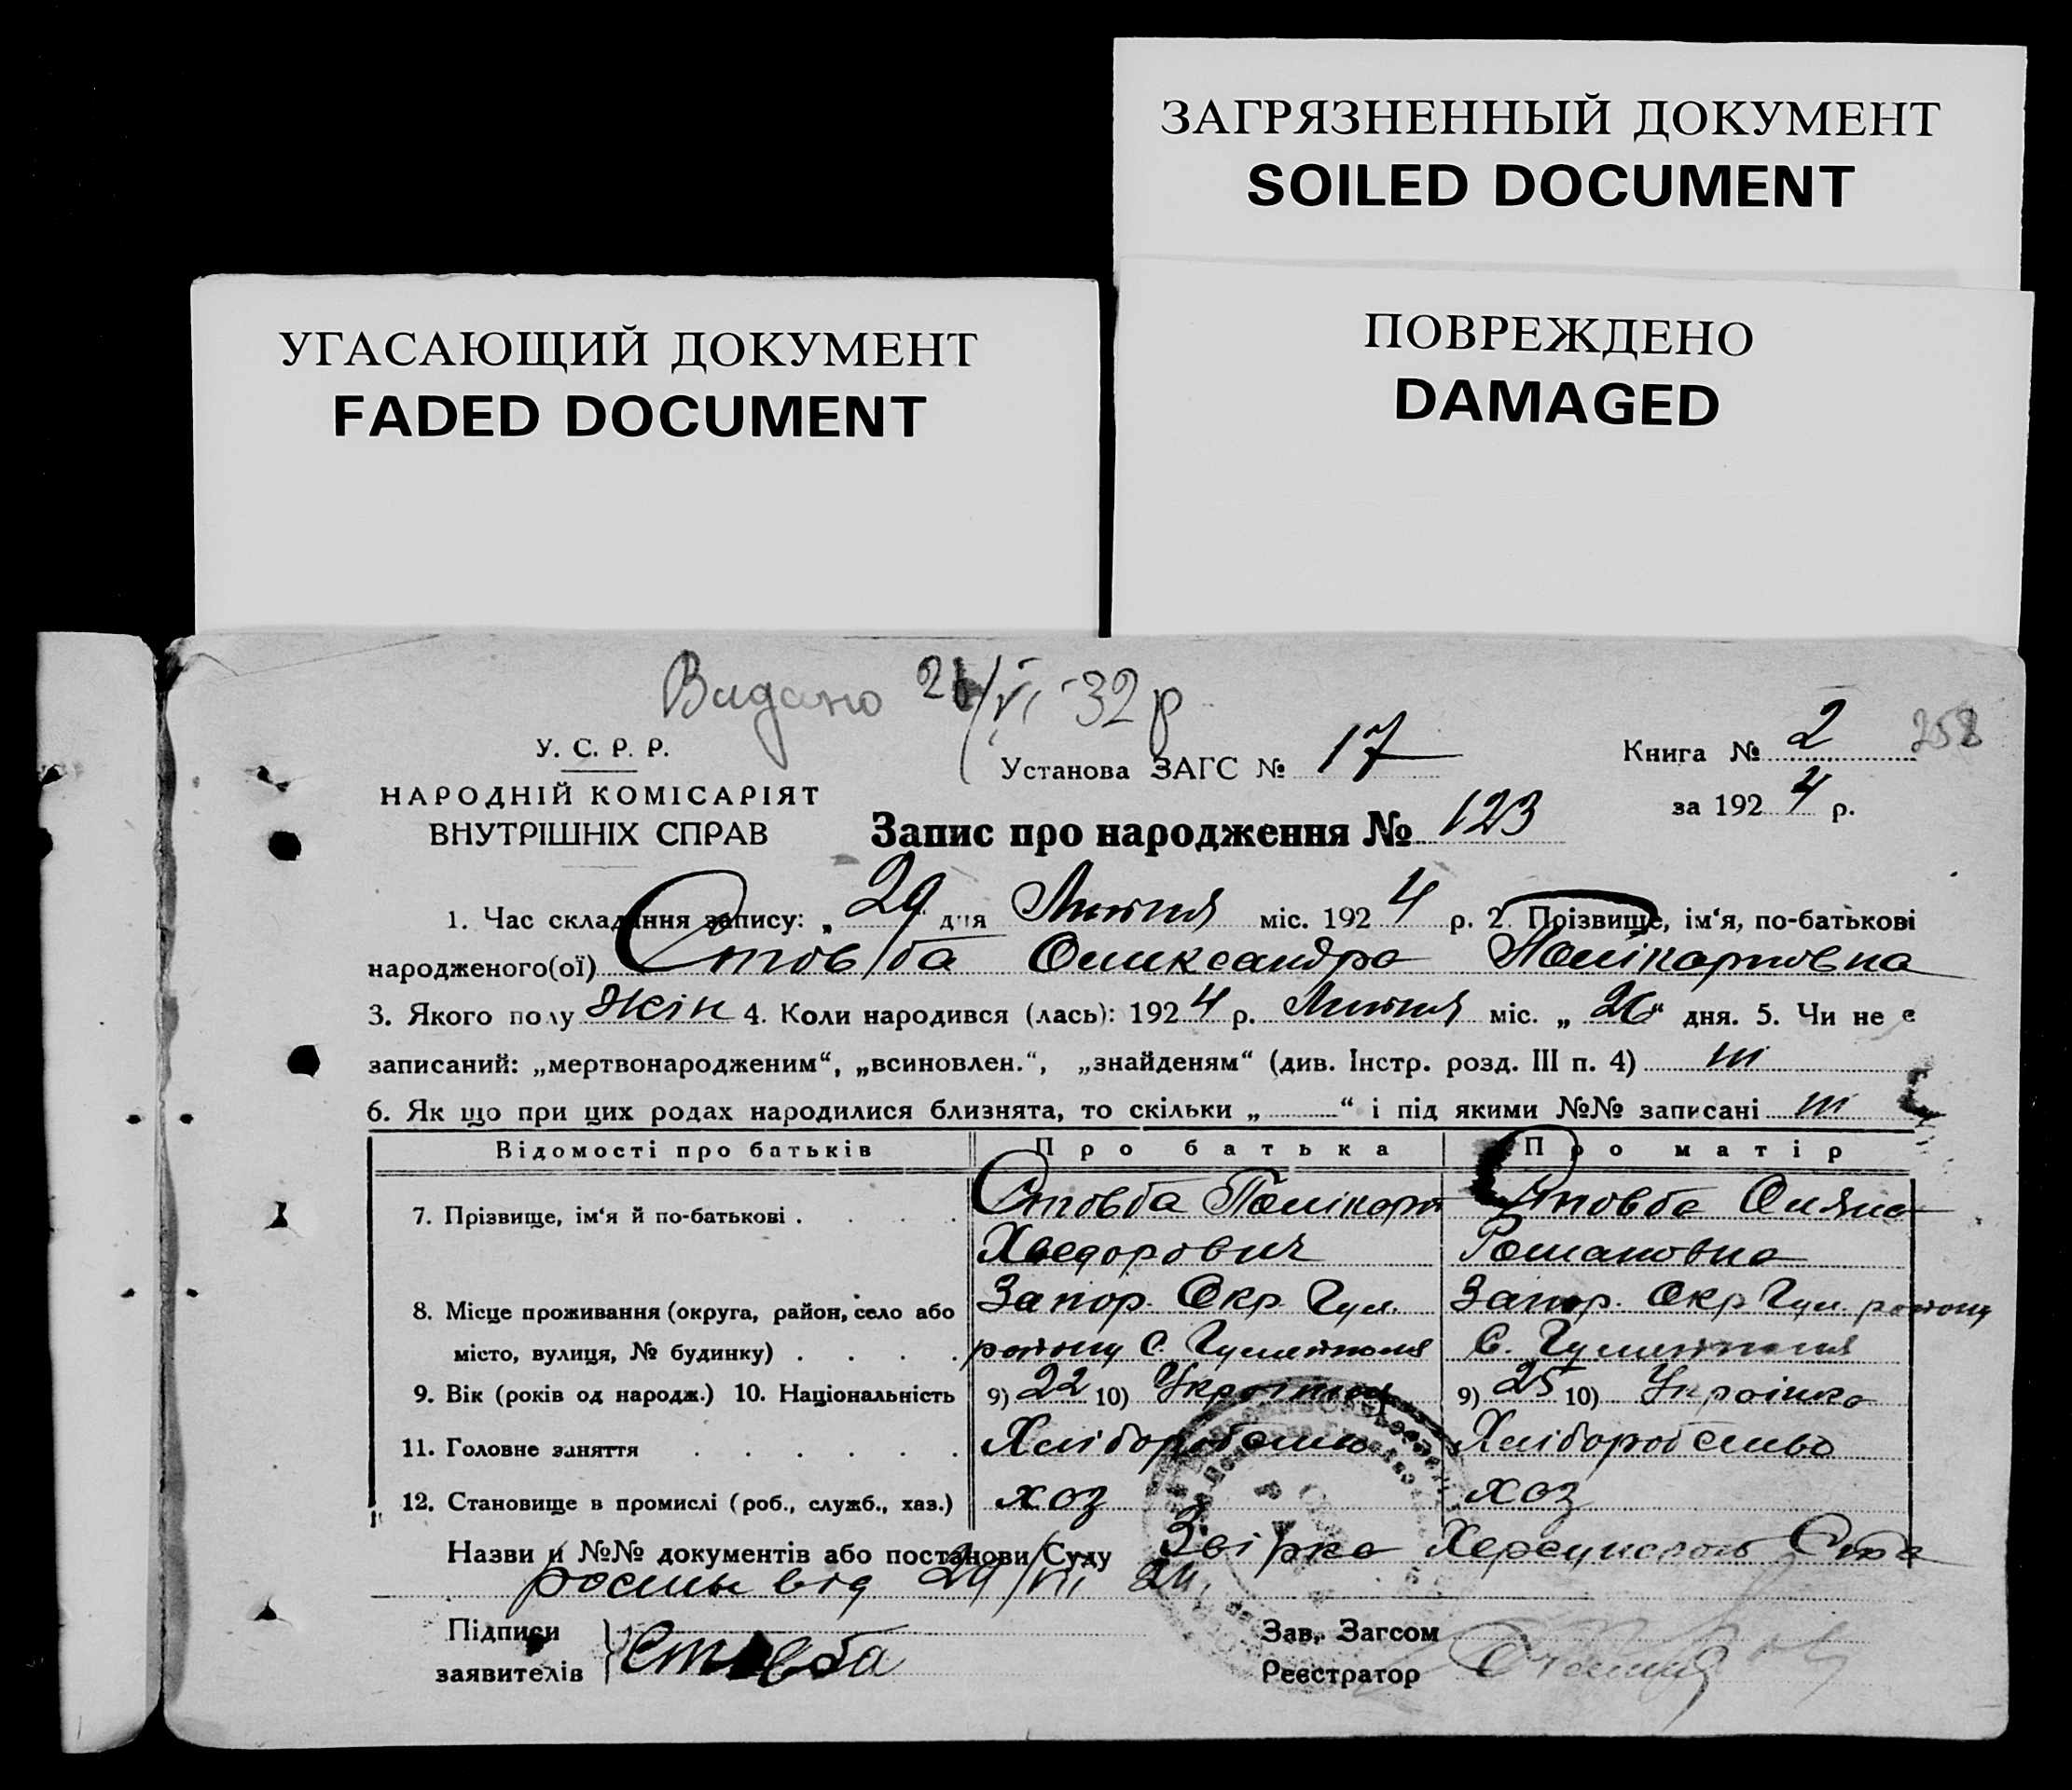 ЗАГРЯЗНЕННЫЙ ДОКУМЕНТ
SOILED DOCUMENT
УГАСАЮЩИЙ ДОКУМЕНТ
FADED DOCUMENT
ПОВРЕЖДЕНО
DAMAGED
Видано 26/VI-32 р
258
У. С. Р. Р.
НАРОДНІЙ КОМІСАРІЯТ
ВНУТРІШНІХ СПРАВ
Установа ЗАГС № 17
Книга № 2
за 1924 р.
Запис про народження № 123
1. Час складання запису: „29" дня Липня міс. 1924 р. 2. Прізвище, ім'я, по-батькові
народженого(ої) Стовба Олександра Полікарповна
3. Якого полу жін 4. Коли народився (лась): 1924 р. Липня міс. „26" дня. 5. Чи не є
записаний: „мертвонародженим", „всиновлен.", „знайденям" (див. Інстр. розд. III п. 4) ні
6. Як що при цих родах народилися близнята, то скільки „ " і під якими №№ записані ні
Відомості про батьків Про батька Про матір
7. Прізвище, ім'я й по-батькові . Стовба Полікарп Стовба Оляна
Хведорович Романовна
8. Місце проживання (округа, район, село або Запор. Окр. Гул. Запор. Окр Гул. району
місто, вулиця, № будинку) . району С. Гуляйполя С. Гуляйполя
9. Вік (років од народж.) 10. Національність 9) 22 10) Українец 9) 25 10) Українка
11. Головне заняття Хліборобство Хліборобство
12. Становище в промислі (роб., служб., хаз.) хоз хоз
Назви и №№ документів або постанови Суду
від 29/VII 24.
Підписи
заявителів Стовба
Зав. Загсом
Реєстратор